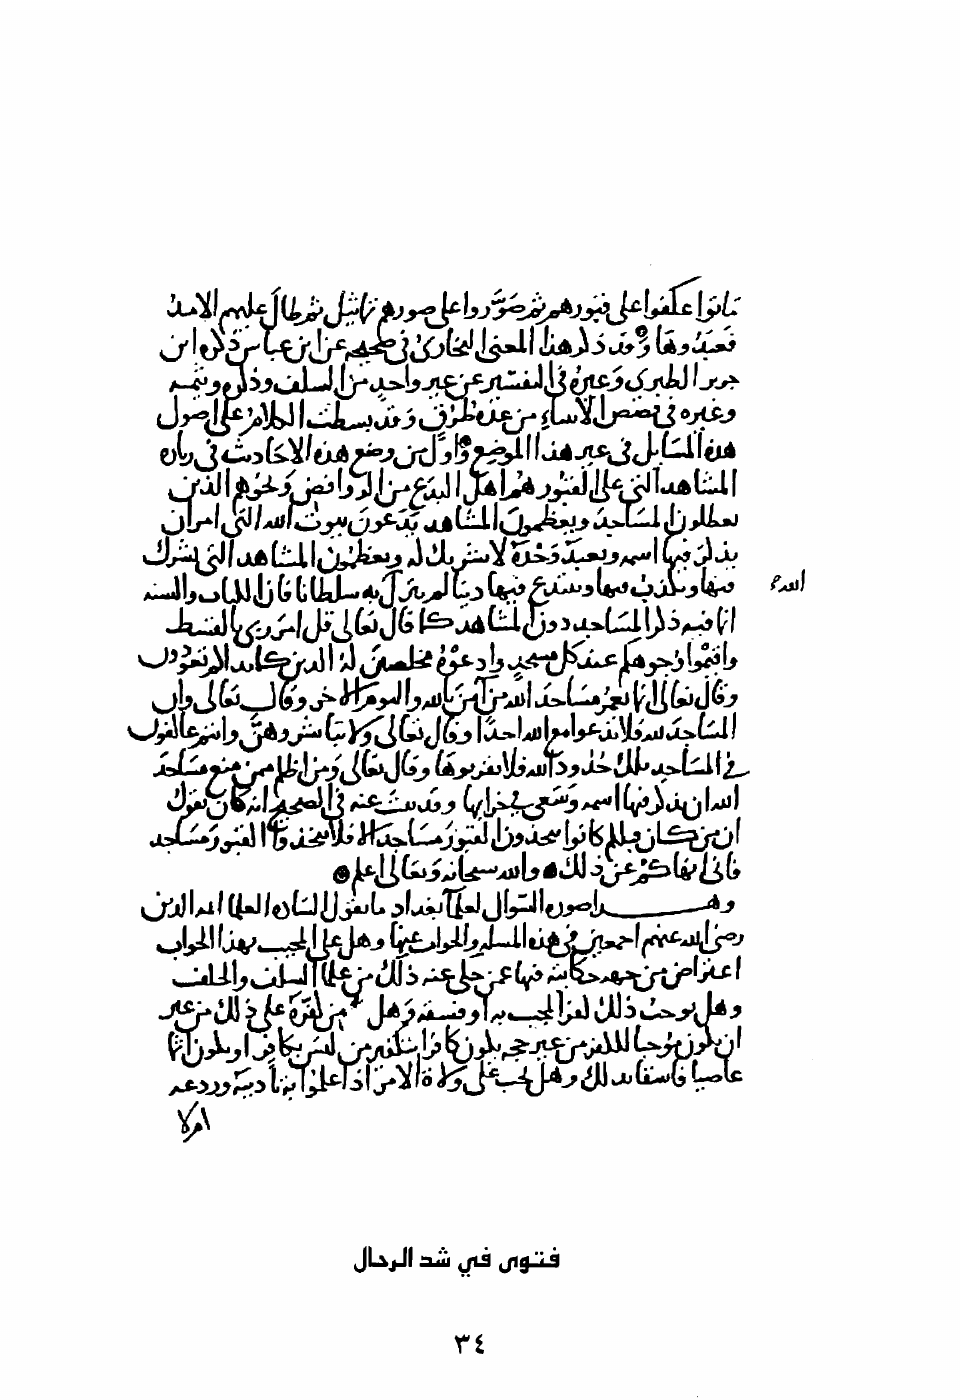 ماتوا عكفوا على قبورهم ثم صوروا على صورهم تماثيل ثم طال عليهم الامد
فعبدوها وقد ذكر هذا المعنى البخاري في صحيحه عن ابن عباس وذكره ابن
جرير الطبري وغيره في التفسير عن غير واحد من السلف وذكره وثيمه
وغيره في قصص الانبياء من عدة طرق وقد بسطت الكلام على اصول
هذه المسايل في غير هذا الموضع واول من وضع هذه الاحاديث في زياره
المشاهد التي على القبور هم اهل البدع من الروافض ونحوهم الذين
يعطلون المساجد ويعظمون المشاهد يدعون بيوت الله التي امر ان
يذكر فيها اسمه ويعبد وحده لا شريك له ويعظمون المشاهد التي يشرك
فيها ويكذب فيها ويبتدع فيها دينا لم ينزل به سلطانا فان الكتاب والسنه
الله
انما فيه ذكر المساجد دون المشاهد كما قال تعالى قل امر ربي بالقسط
واقيموا وجوهكم عند كل مسجد وادعوه مخلصين له الدين كما بداكم تعودون
وقال تعالى انما يعمر مساجد الله من آمن بالله واليوم الاخر وقال تعالى وان
المساجد لله فلا تدعوا مع الله احدا وقال تعالى ولا تباشروهن وانتم عاكفون
في المساجد تلك حدود الله فلا تقربوها وقال تعالى ومن اظلم ممن منع مساجد
الله ان يذكر فيها اسمه وسعى في خرابها وقد ثبت عنه في الصحيح انه كان يقول
ان من كان قبلكم كانوا يتخذون القبور مساجد الا فلا تتخذوا القبور مساجد
فاني انهاكم عن ذلك والله سبحانه وتعالى اعلم
وهذا صوره السوال لعلما بغداد ما يقول الساده العلما ايمه الدين
رضي الله عنهم اجمعين في هذه المسله والجواب عنها وهل على المجيب بهذا الجواب
اعتراض من جهه حكايته فيها عمن حكى عنه ذلك من علما السلف والخلف
وهل يوجب ذلك كفر المجيب به او فسقه وهل من كفره على ذلك من غير
ان يكون موجبا للكفر من غير حجه يكون كافرا بتكفير من ليس بكافر او يكون اثما
عاصيا فاسقا بذلك وهل يجب على ولاة الامر اذا علموا به تاديبه وردعه
ام لا
فتوى في شد الرحال
٣٤